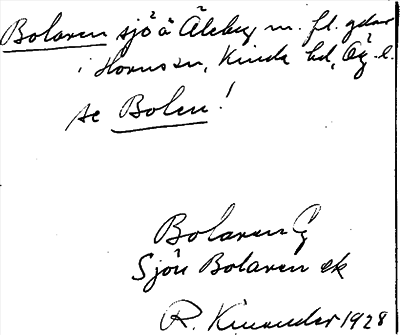 Bolaren sjö å Åleberg m. fl. gdar
i Horns sn, Kinda hd, Ög. l.
se Bolen!
Bolaren Ög
Sjön Bolaren ek
R. Kinander 1928